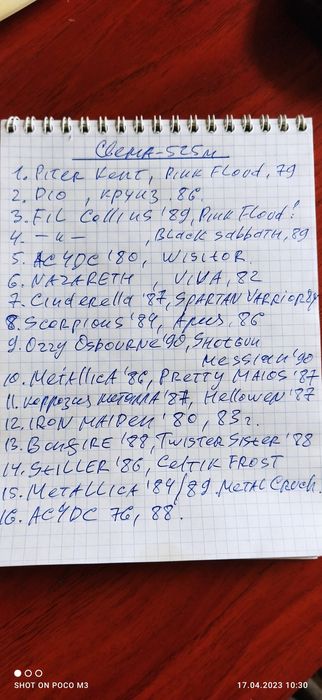 Свема-525м
1. Piter Kent, Pink Flood, 79
2. Dio, круиз, 86.
3. Fil Collins '89, Pink Flood!
4. —"— , Black Sabbath, 89
5. ACYDC '80, Wisitor.
6. NAZARETH VIVA, 82
7. Cinderella '87, SPARTAN WARRIOR
8. Scorpions '84, Ария, 86
9. Ozzy Osbourne '90, Shotgun
Messiah '90
10. Metallica '86, PRETTY MAIDS '87
11. Коррозия металла '87, Helloween '87
12. IRON MAIDEN '80, 83г.
13. BONFIRE '88, Twister Sister '88
14. STILLER '86, Celtik FROST
15. METALLICA '84/89, METAL
16. ACYDC 76, 88.
SHOT ON POCO M3
17.04.2023 10:30